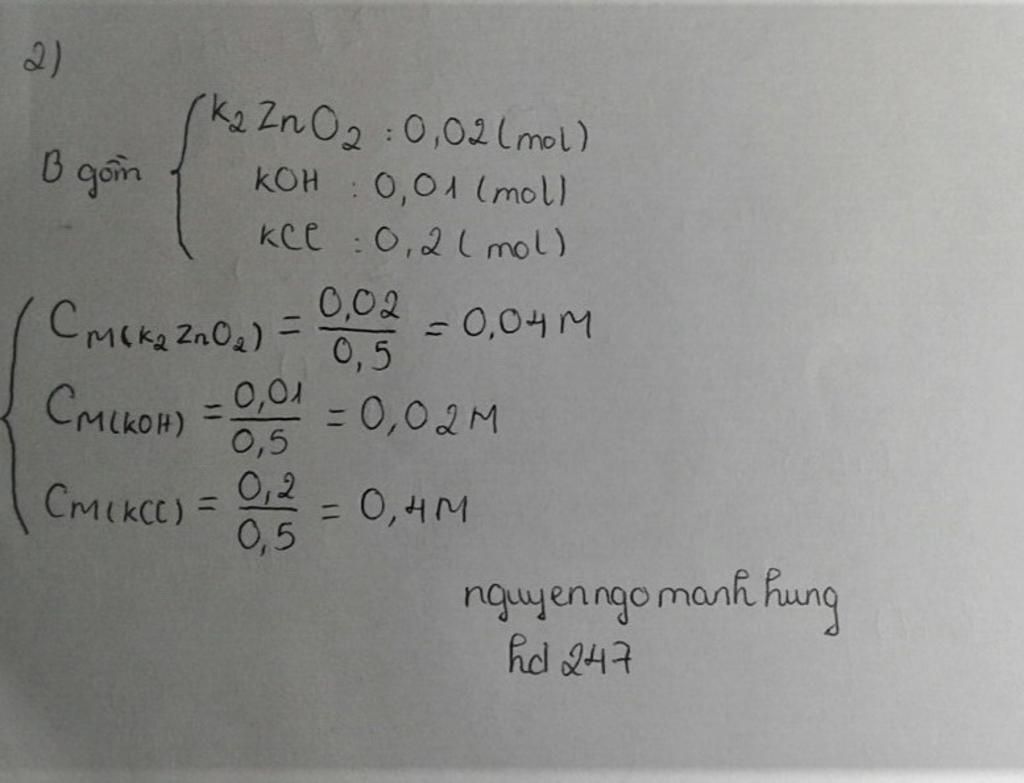 2)
B gồm { K2ZnO2 : 0,02 (mol)
KOH : 0,01 (mol)
KCl : 0,2 (mol)
{ CM(K2ZnO2) = 0,02/0,5 = 0,04M
CM(KOH) = 0,01/0,5 = 0,02M
CM(KCl) = 0,2/0,5 = 0,4M
nguyenngomanhhung
hd 247